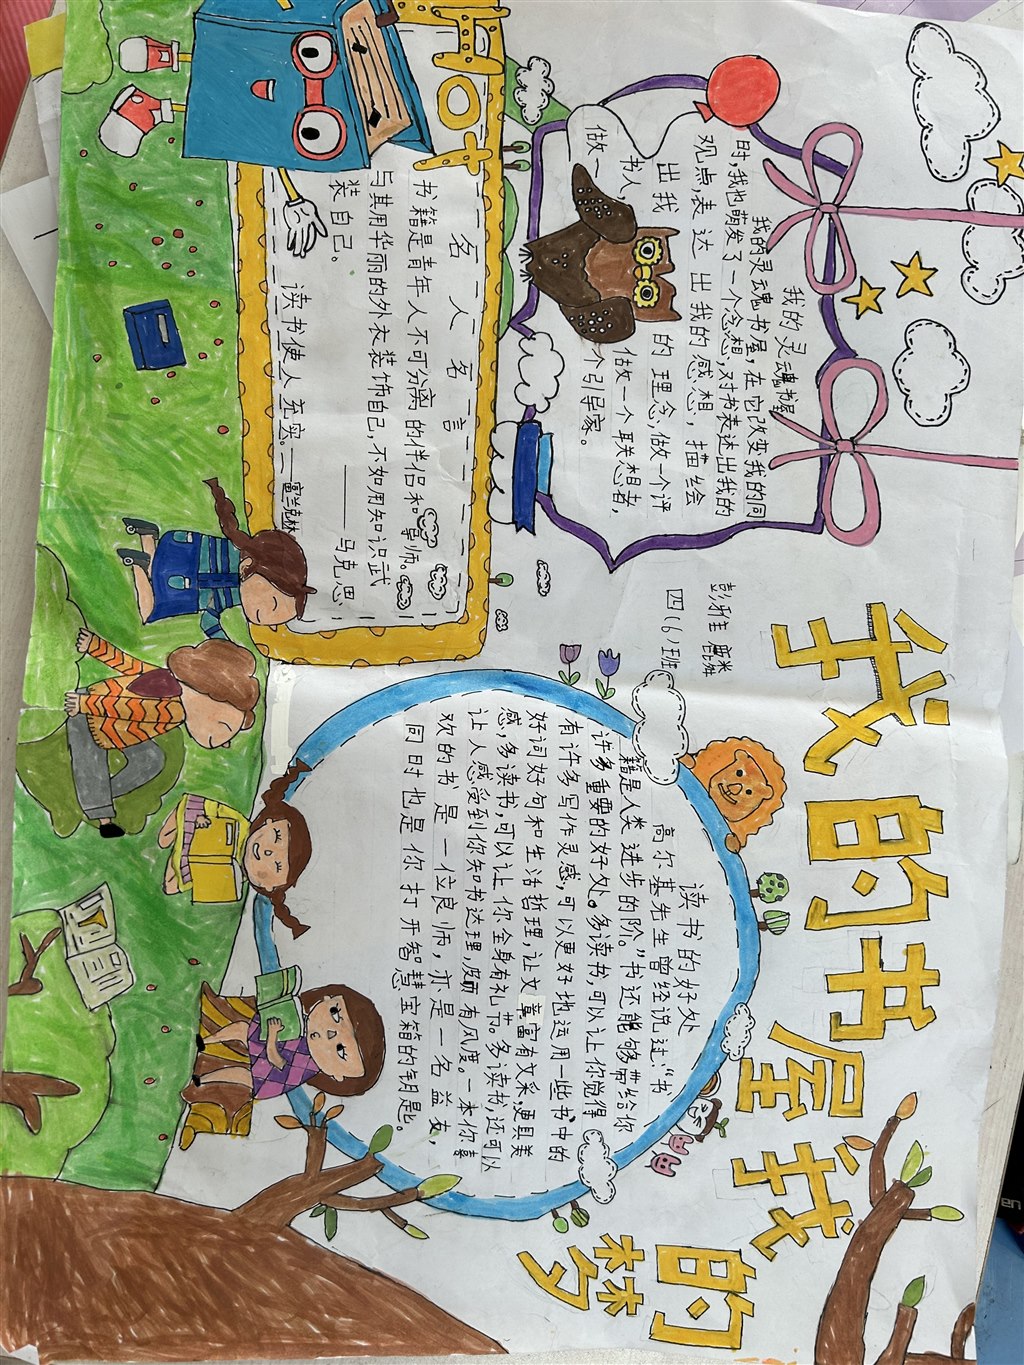 我的书屋我的梦
四(6)班
我的灵魂书屋
我的灵魂书屋,在它改变我的同
时,我也萌发了一个念想,对书表达出我的
观点,表达出我的感想,描绘
出我的理念,做一个评
书人,做一个联想者,
做一个引导家。
Hot
名人名言
书籍是青年人不可分离的伴侣和导师。
与其用华丽的外衣装饰自己,不如用知识武
装自己。 ——马克思
读书使人充实。——富兰克林
读书的好处
高尔基先生曾经说过:“书
籍是人类进步的阶。”书还能够带给你
许多重要的好处。多读书,可以让你觉得
有许多写作灵感,可以更好地运用一些书中的
好词好句和生活哲理,让文章富有文采,更具美
感,多读书,可以让你全身有礼节。多读书,还可以
让人感受到你知书达理,颇有风度。一本你喜
欢的书是一位良师,亦是一名益友,
同时也是你打开智慧宝箱的钥匙。